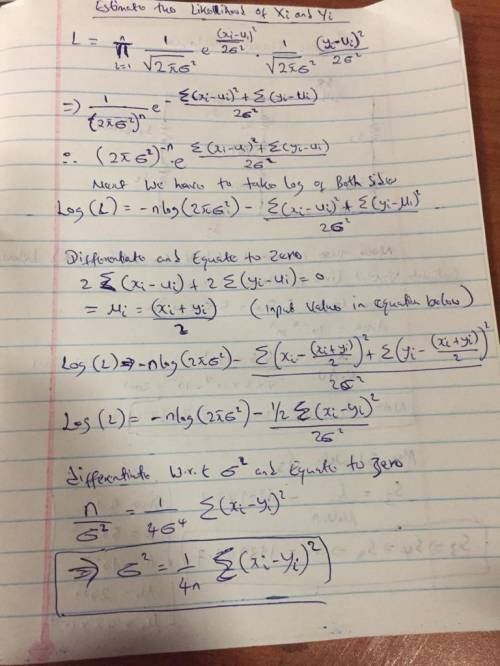 Estimate the Likelihood of Xi and Yi
L = n π i=1 1/√2πσ² e (xi-ui)²/2σ² · 1/√2πσ² (yi-ui)²/2σ²
=> 1/(2πσ²)^n e - Σ(xi-ui)²+Σ(yi-μi)/2σ²
∴ (2πσ²)^-n · e Σ(xi-ui)²+Σ(yi-ui)/2σ²
We have to take log of Both Side
Log(L) = -nlog(2πσ²) - Σ(xi-ui)²+Σ(yi-μi)²/2σ²
Differentiate and Equate to Zero
2 Σ(xi-ui)+2Σ(yi-ui)=0
= μi = (xi+yi)/2 (input value in equation below)
Log(L)=> -nlog(2πσ²) - Σ(xi-(xi+yi)/2)²+Σ(yi-(xi+yi)/2)²/2σ²
Log(L) = -nlog(2πσ²) - 1/2 Σ(xi-yi)²/2σ²
differentiate w.r.t σ² and Equate to Zero
n/σ² = 1/4σ⁴ Σ(xi-yi)²
=> σ² = 1/4n Σ(xi-yi)²